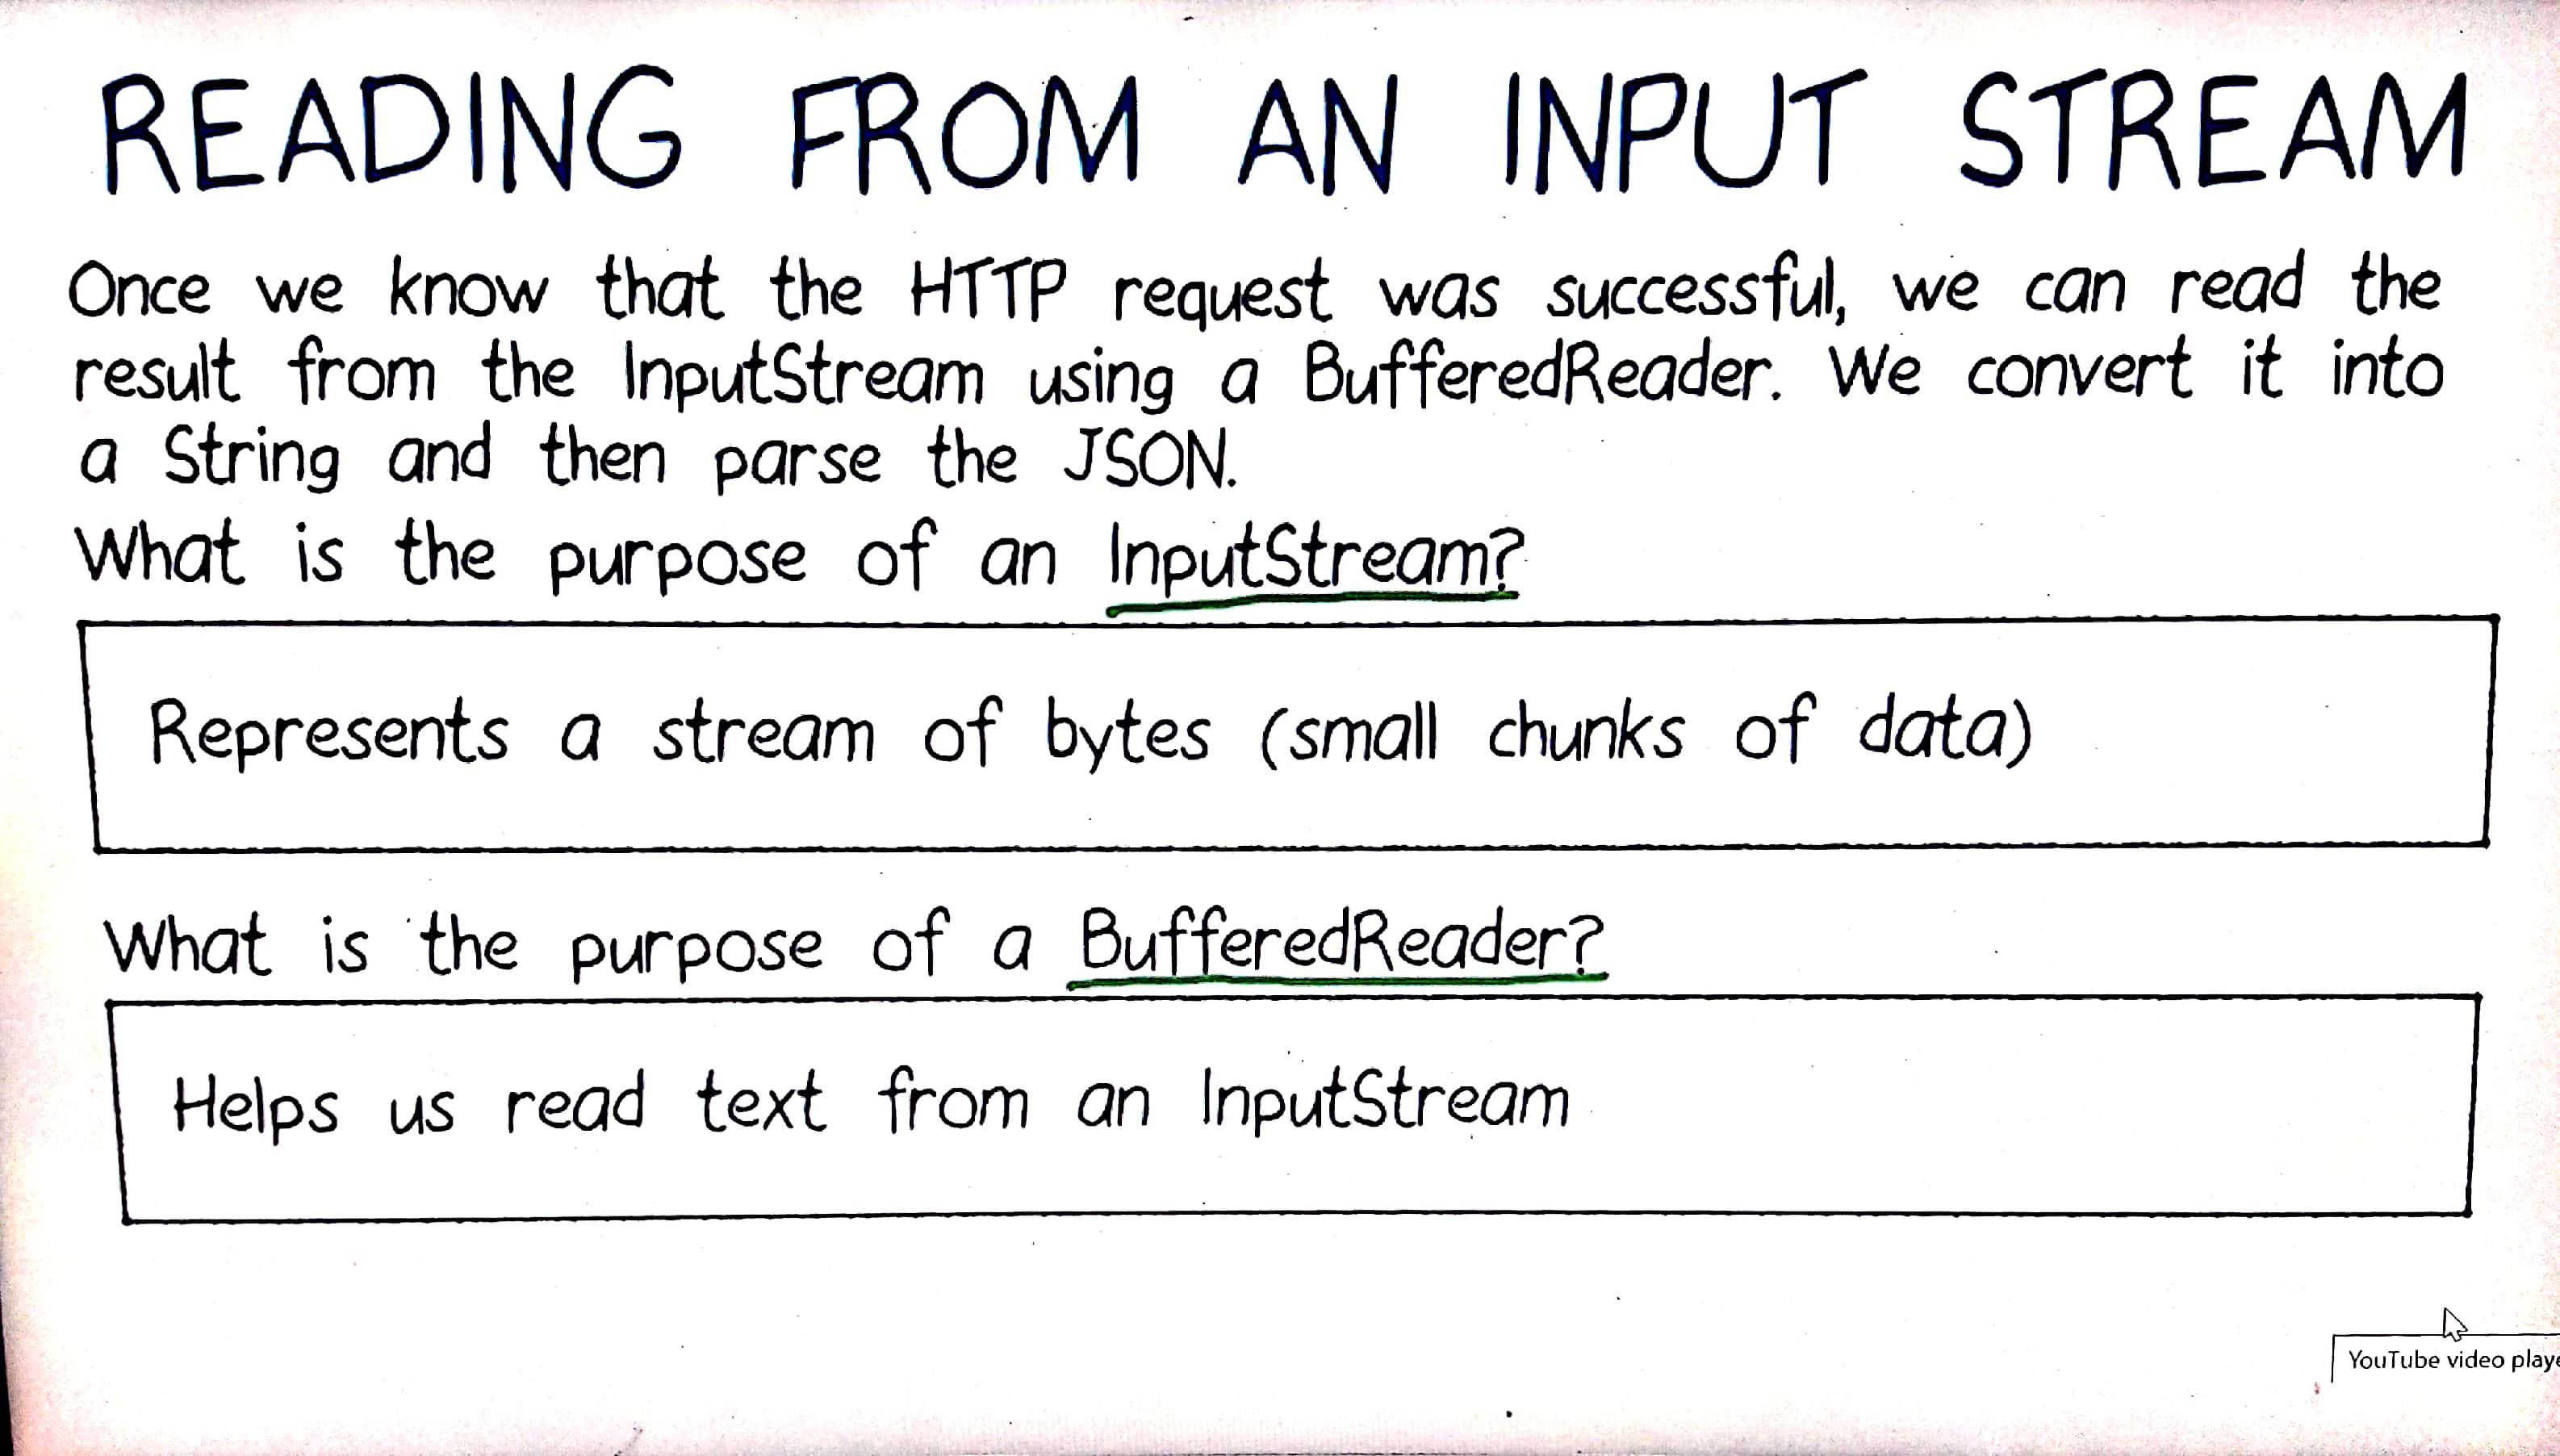 READING FROM AN INPUT STREAM
Once we know that the HTTP request was successful, we can read the
result from the InputStream using a BufferedReader. We convert it into
a String and then parse the JSON.
What is the purpose of an InputStream?
Represents a stream of bytes (small chunks of data)
What is the purpose of a BufferedReader?
Helps us read text from an InputStream
YouTube video